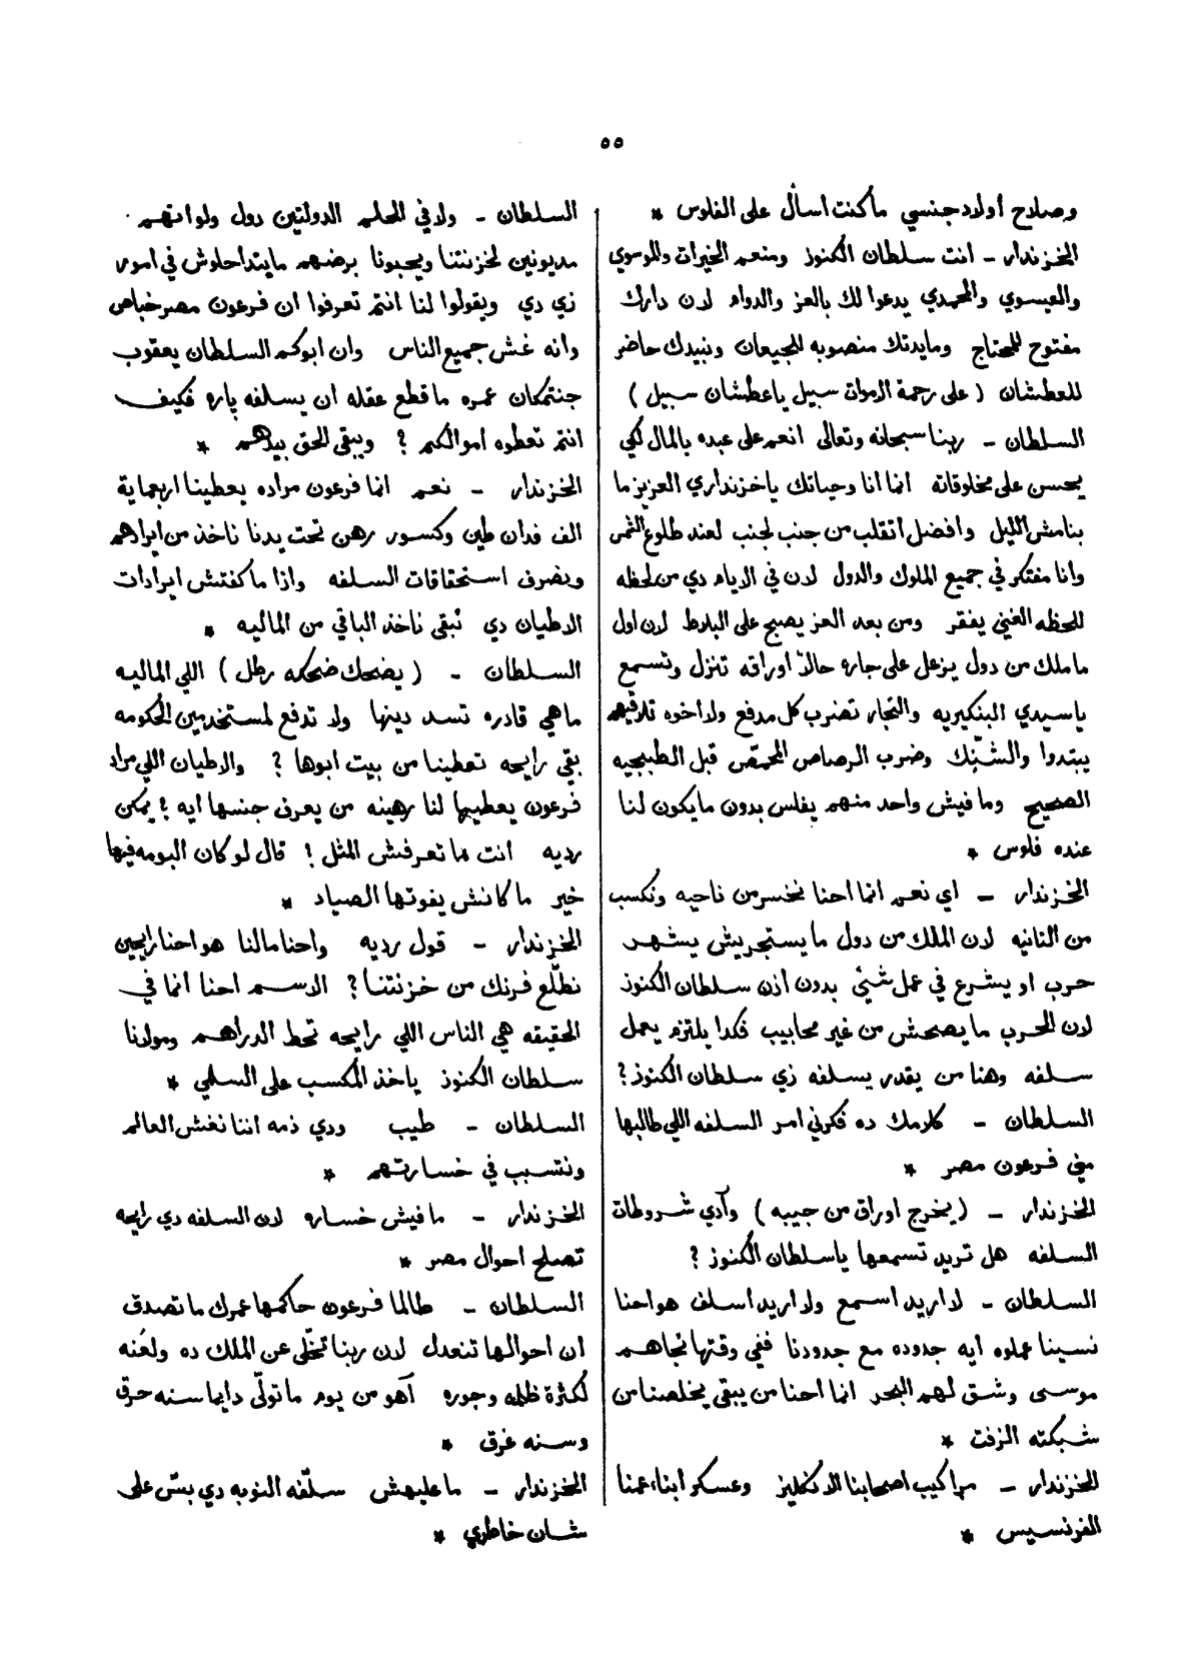 ٥٥
وصلاح اولاد جنسي ماكنت اسأل على الفلوس *
الخزندار ــ انت سلطان الكنوز ومنعم الخيرات والموسوي
والعيسوي والمحمدي يدعوا لك بالعز والدوام لان دارك
مفتوح للمحتاج ومايدتك منصوبه للجيعان ونبيدك حاضر
للعطشان ( على رحمة الاموات سبيل ياعطشان سبيل )
السلطان ــ ربنا سبحانه وتعالى انعم على عبده بالمال لكي
يحسن على مخلوقاته انما انا وحياتك ياخزنداري العزيز ما
بنامش الليل وافضل اتقلب من جنب لجنب لعند طلوع الشمس
وانا مفتكر في جميع الملوك والدول لان في الايام دي من لحظه
للحظه الغني يفقر ومن بعد العز يصبح على البلاط لان اول
ماملك من دول يزعل على جاره حالاً اوراقه تنزل وتسمع
ياسيدي البنكيريه والتجار تضرب كل مدفع ولا اخوه تلاقيهم
يبتدوا والشبّك وضرب الرصاص المحمّص قبل الطبجيه
الصحيح ومافيش واحد منهم يفلس بدون مايكون لنا
عنده فلوس *
الخزندار ــ اي نعم انما احنا نخسر من ناحيه ونكسب
من الثانيه لان الملك من دول ما يستجريش يشهر
حرب او يشرع في عمل شئي بدون اذن سلطان الكنوز
لان الحرب ما يصحش من غير محابيب فكدا يلتزم يعمل
سلفه وهنا من يقدر يسلفه زي سلطان الكنوز ؟
السلطان ــ كلامك ده فكرني امر السلفه اللي طالبها
مني فرعون مصر *
الخزندار ــ ( يخرج اوراق من جيبه ) وآدي شروطات
السلفه هل تريد تسمعها ياسلطان الكنوز ؟
السلطان ــ لا اريد اسمع ولا اريد اسلف هو احنا
نسينا عملوه ايه جدوده مع جدودنا ففي وقتها نجاهم
موسى وشق لهم البحر انما احنا من يبقى يخلصنا من
شبكته الزفت *
الخزندار ــ مراكيب اصحابنا الانكليز وعسكر ابناء عمنا
الفرنسيس *
السلطان ــ ولا في الحلم الدولتين دول ولو انهم
مديونين لخزنتنا ويحبونا برضهم مايتداحلوش في امور
زي دي ويقولوا لنا انتم تعرفوا ان فرعون مصر خباص
وانه غش جميع الناس وان ابوكم السلطان يعقوب
جنتمكان عمره ماقطع عقله ان يسلفه پاره فكيف
انتم تعطوه اموالكم ؟ ويبقى الحق بيدهم *
الخزندار ــ نعم انما فرعون مراده يعطينا اربعماية
الف فدان طين وكسور رهن تحت يدنا ناخذ من ايرادهم
ونصرف استحقاقات السلفه واذا ما كفتش ايرادات
الاطيان دي نبقى ناخذ الباقي من الماليه *
السلطان ــ ( يضحك ضحكه رطل ) اللي الماليه
ماهي قادره تسد دينها ولا تدفع لمستخدمين الحكومه
بقى رايحه تعطينا من بيت ابوها ؟ والاطيان اللي مراد
فرعون يعطيها لنا رهينه من يعرف جنسها ايه ؟ يمكن
رديه انت ما تعرفش المثل ! قال لو كان البومه فيها
خير ما كانش يفوتها الصياد *
الخزندار ــ قول رديه واحنا مالنا هو احنا رايحين
نطلّع فرنك من خزنتنا ؟ الاسم احنا انما في
الحقيقه هي الناس اللي رايحه تحط الدراهم ومولانا
سلطان الكنوز ياخذ المكسب على السلمي *
السلطان ــ طيب ودي ذمه اننا نغش العالم
ونتسبب في خسارتهم *
الخزندار ــ مافيش خساره لان السلفه دي رايحه
تصلح احوال مصر *
السلطان ــ طالما فرعون حاكمها عمرك ما تصدق
ان احوالها تنعدل لان ربنا تخلّى عن الملك ده ولعنه
لكثرة ظلمه وجوره آهو من يوم ما تولّى دايما سنه حرق
وسنه غرق *
الخزندار ــ ماعليهش سلّفه النوبه دي بسّ على
شان خاطري *